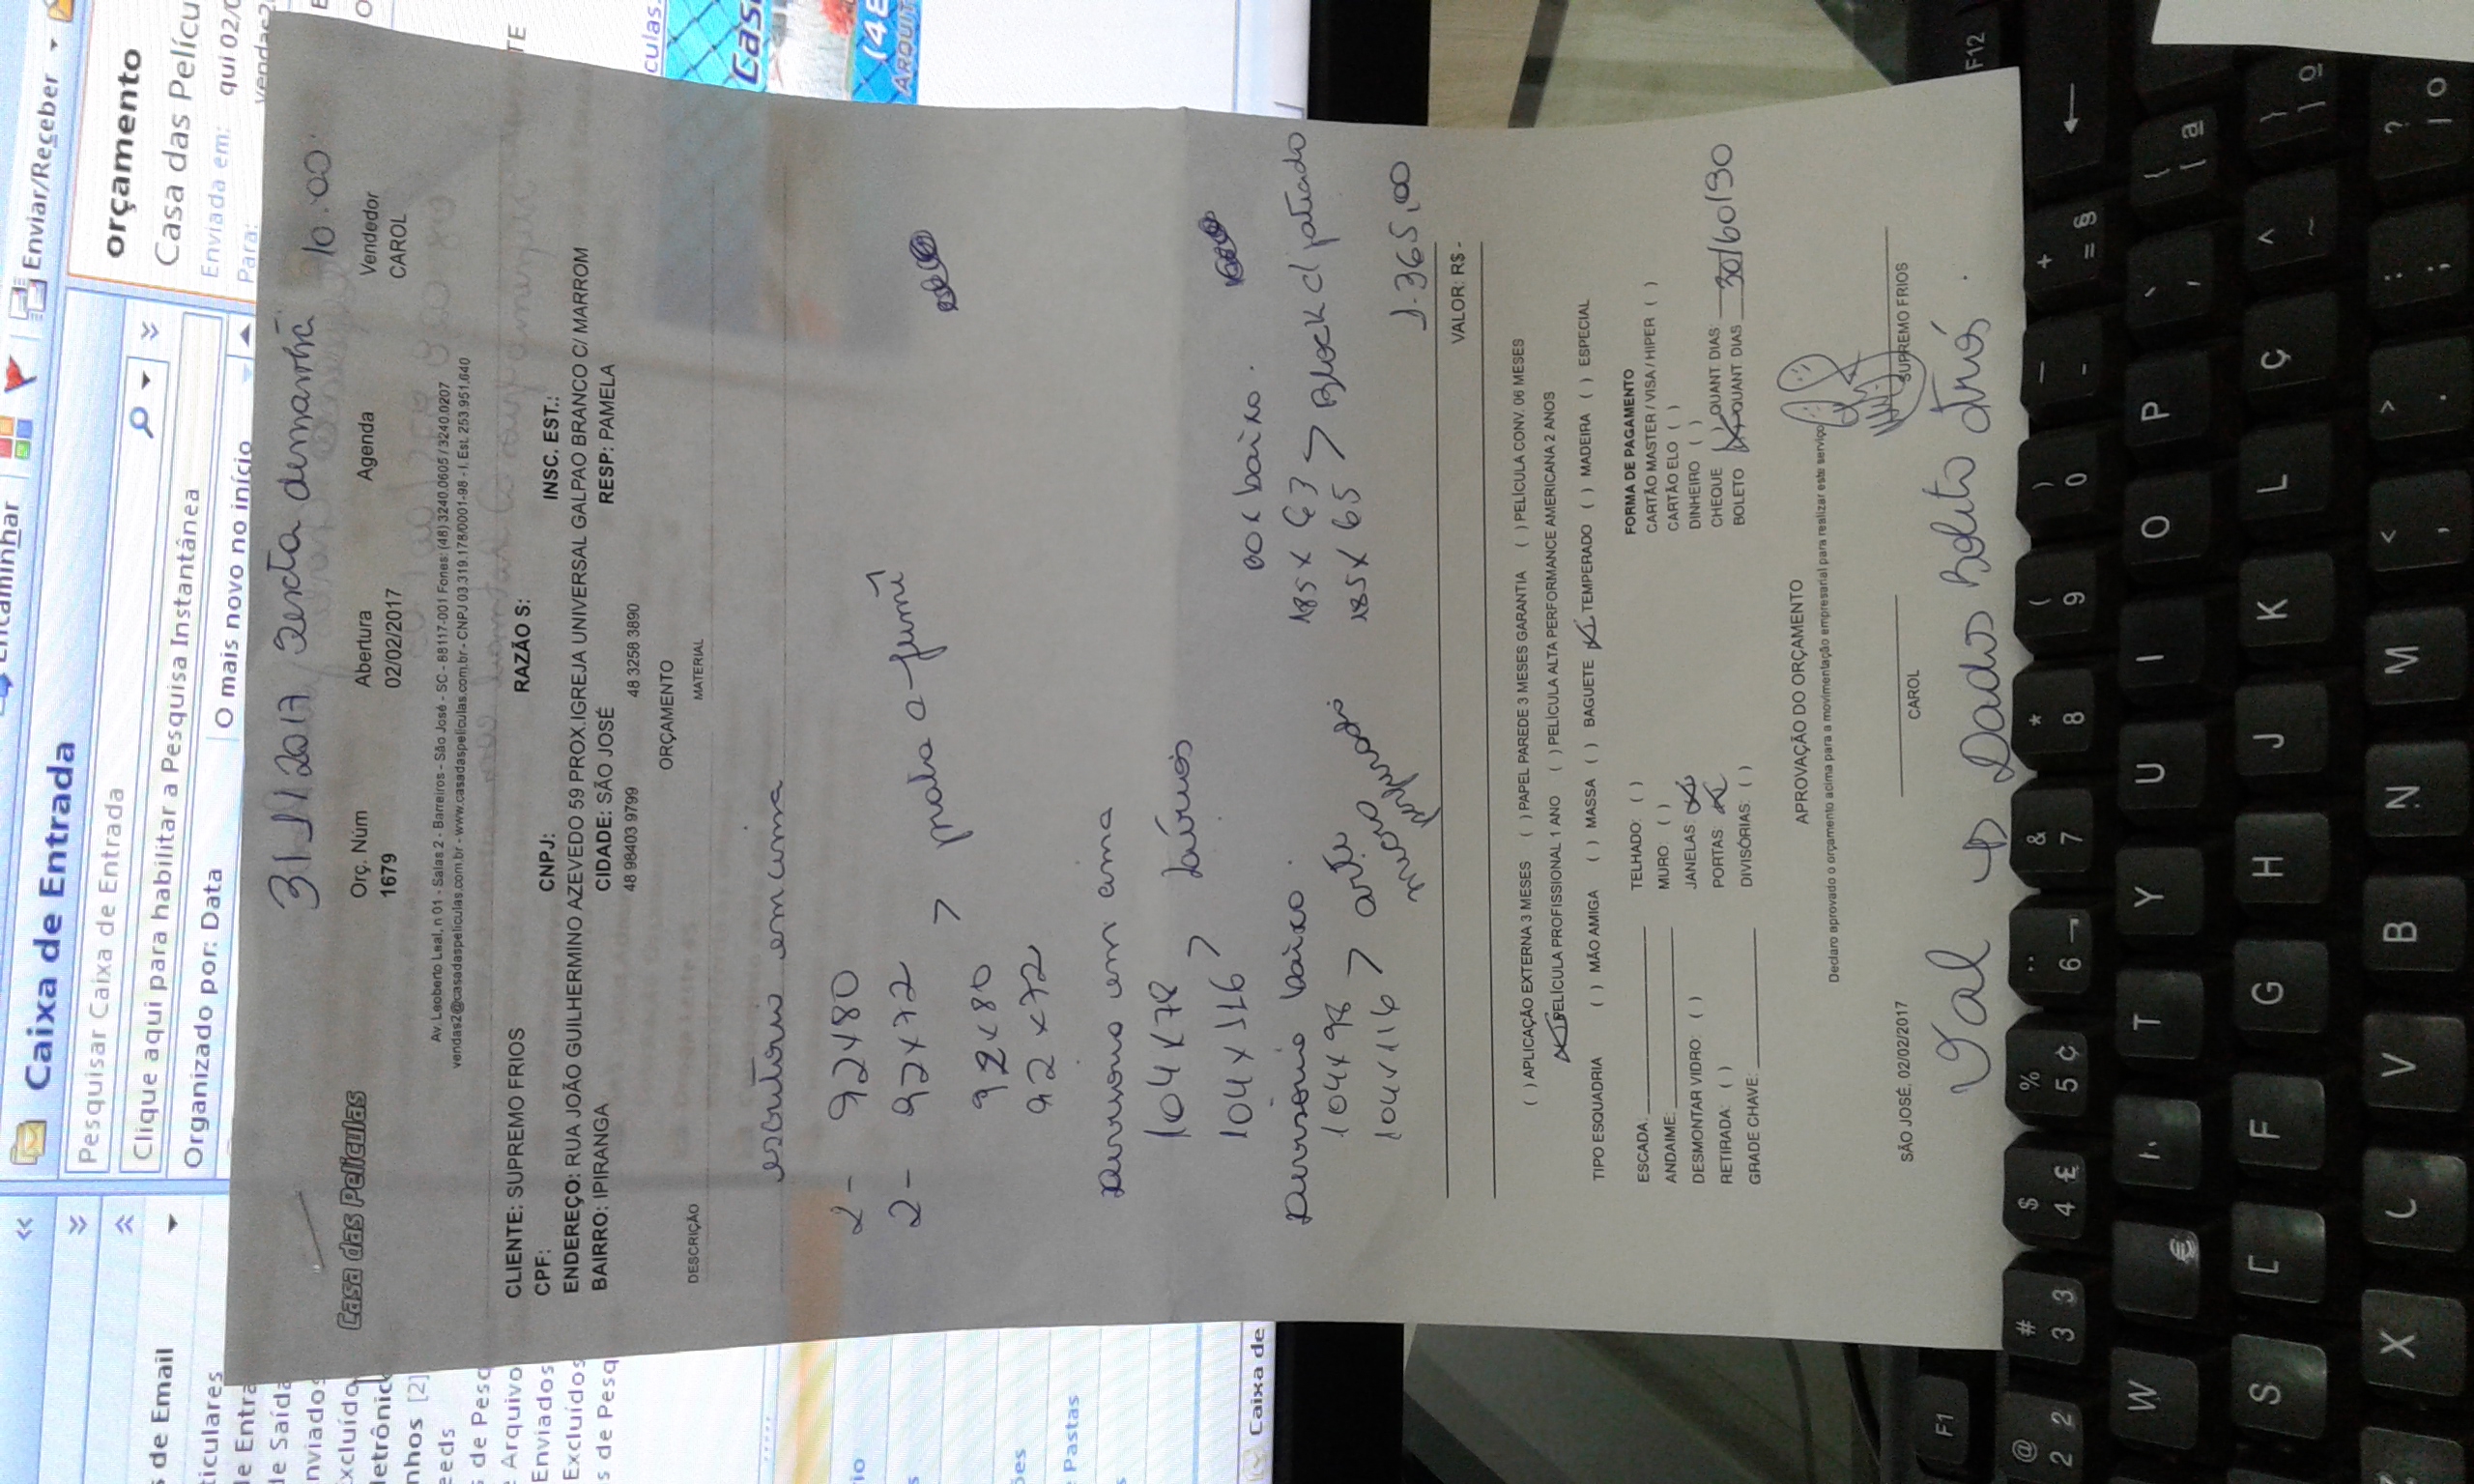 3/1/2017 sexta demanhã 10:00
Casa das Películas
Orç. Núm Abertura Agenda Vendedor
1679 02/02/2017 CAROL
Av. Leoberto Leal, n 01 - Salas 2 - Barreiros - São José - SC - 88117-001 Fones: (48) 3240.0605 / 3240.0207
vendas2@casadaspeliculas.com.br - www.casadaspeliculas.com.br - CNPJ 03.319.178/0001-98 - I. Est. 253.951.640
CLIENTE: SUPREMO FRIOS RAZÃO S:
CPF: CNPJ: INSC. EST.:
ENDEREÇO: RUA JOÃO GUILHERMINO AZEVEDO 59 PROX.IGREJA UNIVERSAL GALPAO BRANCO C/ MARROM
BAIRRO: IPIRANGA CIDADE: SÃO JOSÉ RESP: PAMELA
48 98403 9799 48 3258 3890
ORÇAMENTO
DESCRIÇÃO MATERIAL
escritório em cima
2 - 92x80
2 - 92x72 prata a-fumê
92x80
92x72
em cima
104x78
104x116
baixo.
104x98
104x116
baixo.
185x63
185x65 > Block c/ prateado
1.365,00
VALOR: R$ -
( ) APLICAÇÃO EXTERNA 3 MESES ( ) PAPEL PAREDE 3 MESES GARANTIA ( ) PELÍCULA CONV. 06 MESES
(X) PELÍCULA PROFISSIONAL 1 ANO ( ) PELÍCULA ALTA PERFORMANCE AMERICANA 2 ANOS
TIPO ESQUADRIA ( ) MÃO AMIGA ( ) MASSA ( ) BAGUETE (X) TEMPERADO ( ) MADEIRA ( ) ESPECIAL
ESCADA: TELHADO: ( )
ANDAIME: MURO: ( )
DESMONTAR VIDRO: ( ) JANELAS (X)
RETIRADA: ( ) PORTAS (X)
GRADE CHAVE: DIVISÓRIAS: ( )
FORMA DE PAGAMENTO
CARTÃO MASTER / VISA / HIPER ( )
CARTÃO ELO ( )
DINHEIRO ( )
CHEQUE QUANT. DIAS:
BOLETO (X) QUANT DIAS 30/60/90
APROVAÇÃO DO ORÇAMENTO
Declaro aprovado o orçamento acima para a movimentação empresarial para realizar este serviço
SÃO JOSÉ, 02/02/2017 CAROL SUPREMO FRIOS
Val Dados Boleto atrás.
Encaminhar
Enviar/Receber
Caixa de Entrada
Pesquisar Caixa de Entrada
Clique aqui para habilitar a Pesquisa Instantânea
Organizado por: Data O mais novo no início
orçamento
Casa das Pelícu
Enviada em: qui 02/0
Para: vendas2
de Email
ticulares
de Entra
de Saída
nviados
xcluído
letrônic
nhos [2]
eeds
de Pesq
Arquivo
Enviados
Excluídos
s de Pesq
Pastas
Caixa de
culas.
Cas
(48
ARQUIT
F1
F12
@ 2 2
# 3 3
$ 4 £
% 5 ¢
¨ 6 ¬
& 7
* 8
( 9
) 0
_ -
+ = §
W € T Y U I O P ` ´ { [ ª
S F G H J K L Ç ^ ~ } ] º
X C V B N M < , > . : ; ? / °